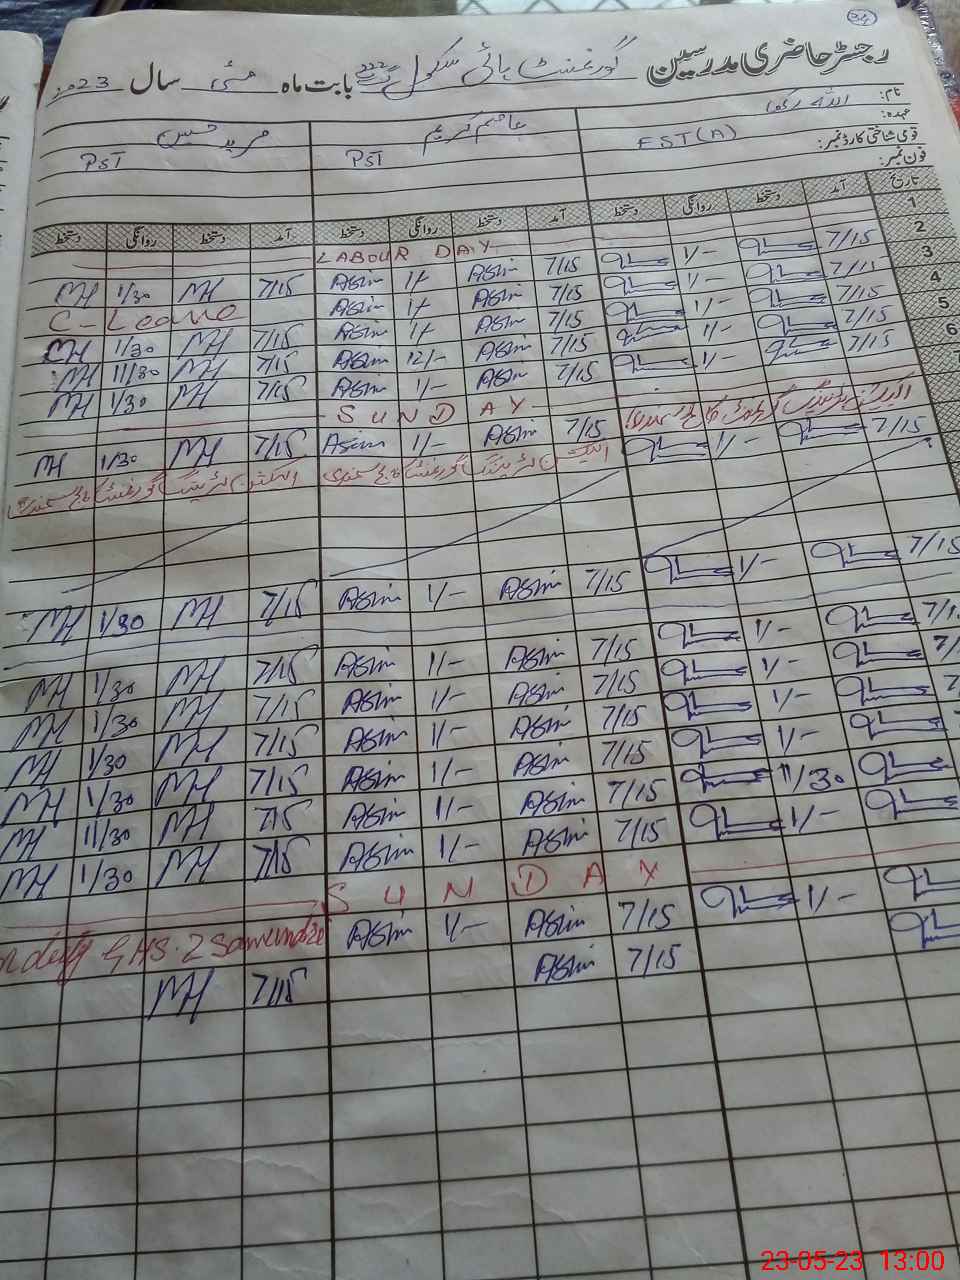 34
رجسٹر حاضری مدرسین گورنمنٹ ہائی سکول بابت ماہ مئی سال 2023
نام: اللہ رکھا عاصم کریم مرید حسین
عہدہ: EST(A) PST PST
قومی شناختی کارڈ نمبر:
فون نمبر:
تاریخ آمد دستخط روانگی دستخط آمد دستخط روانگی دستخط آمد دستخط روانگی دستخط
1 LABOUR DAY
2 7/15 1/- 7/15 Asim 1/- Asim 7/15 MH 1/30 MH
3 7/15 1/- 7/15 Asim 1/- Asim C-Leave
4 7/15 1/- 7/15 Asim 1/- Asim 7/15 MH 1/30 MH
5 7/15 1/- 7/15 Asim 12/- Asim 7/15 MH 11/30 MH
6 7/15 1/- 7/15 Asim 1/- Asim 7/15 MH 1/30 MH
7 SUNDAY
7/15 1/- 7/15 Asim 1/- Asim 7/15 MH 1/30 MH
الیکشن ٹریننگ گورنمنٹ کالج سمندری الیکشن ٹریننگ گورنمنٹ کالج سمندری
7/15 1/- 7/15 Asim 1/- Asim 7/15 MH 1/30 MH
1/- 7/15 Asim 1/- Asim 7/15 MH 1/30 MH
1/- 7/15 Asim 1/- Asim 7/15 MH 1/30 MH
1/- 7/15 Asim 1/- Asim 7/15 MH 1/30 MH
1/- 7/15 Asim 1/- Asim 7/15 MH 1/30 MH
11/30 7/15 Asim 1/- Asim 7/15 MH 11/30 MH
1/- 7/15 Asim 1/- Asim 7/15 MH 1/30 MH
SUNDAY
1/- 7/15 Asim 1/- Asim duty GHS. 2 Samundri
7/15 Asim 7/15 MH
23-05-23 13:00